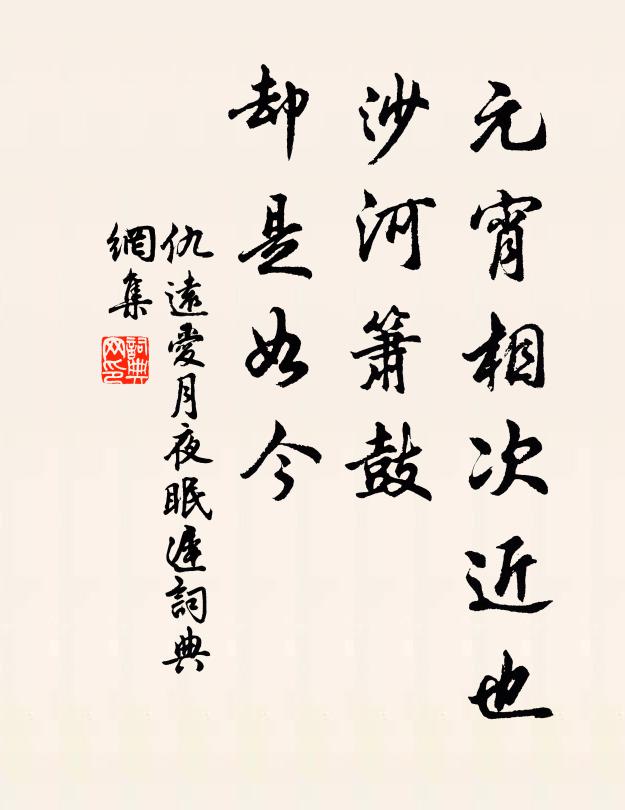 元宵相次近也
沙河箫鼓
却是如今
仇遠愛月夜眠遲詞典
網集
詞典
网印